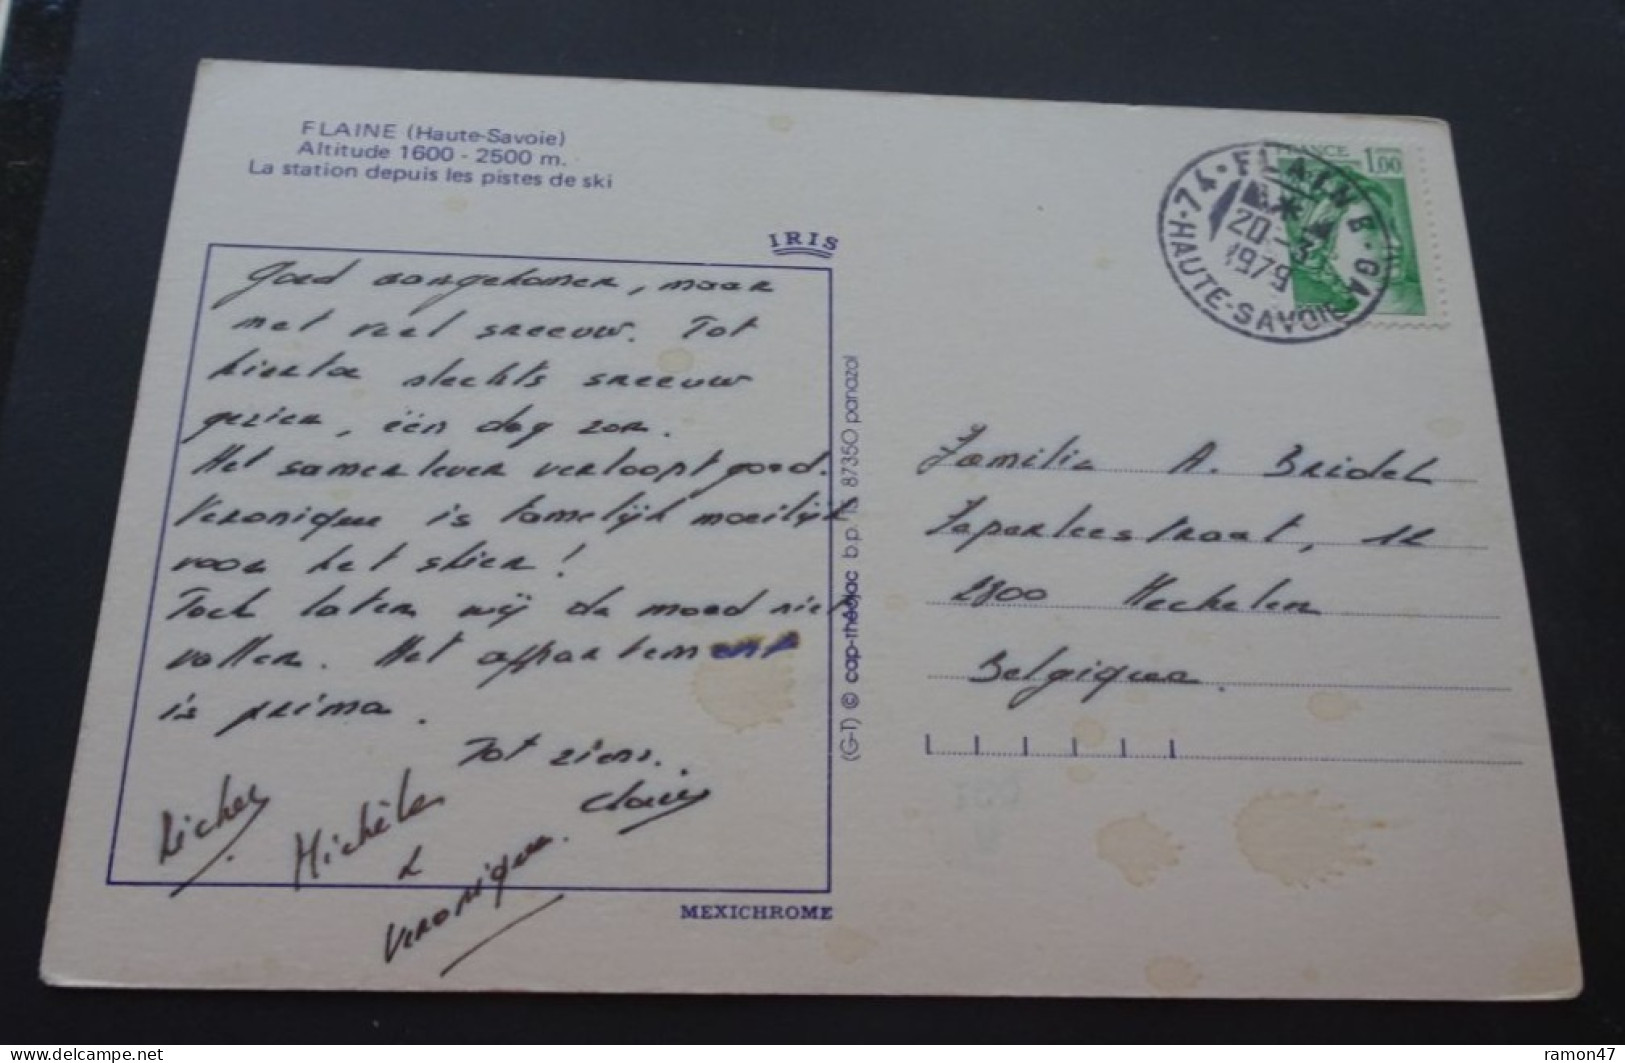 FLAINE (Haute-Savoie)
Altitude 1600 - 2500 m.
La station depuis les pistes de ski
IRIS
Goed aangekomen, maar
met veel sneeuw. Tot
hiertoe slechts sneeuw
gezien, één dag zon.
Het samenleven verloopt goed.
Veronique is tamelijk moeilijk
voor het skiën!
Toch laten wij de moed niet
vallen. Het appartement
is prima.
Tot ziens.
Michèle
&
Veronique.
MEXICHROME
(G-T) © cap-théojac b.p. 115 87350 panazol
FRANCE 1,00
74 - FLAINE - GA
20-3
1979
HAUTE-SAVOIE
Familie A. Bridel
straat, 12
2800 Mechelen
Belgique.
delcampe.net
ramon47